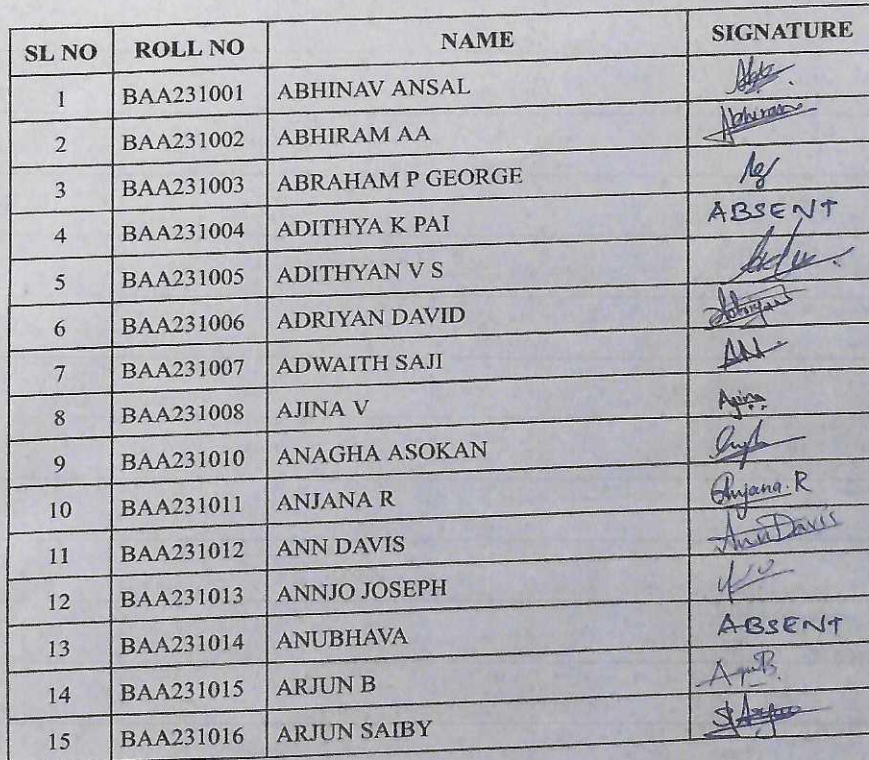 SL NO ROLL NO NAME SIGNATURE
1 BAA231001 ABHINAV ANSAL
2 BAA231002 ABHIRAM AA Abhiram
3 BAA231003 ABRAHAM P GEORGE
4 BAA231004 ADITHYA K PAI ABSENT
5 BAA231005 ADITHYAN V S
6 BAA231006 ADRIYAN DAVID
7 BAA231007 ADWAITH SAJI
8 BAA231008 AJINA V Ajina
9 BAA231010 ANAGHA ASOKAN
10 BAA231011 ANJANA R Anjana.R
11 BAA231012 ANN DAVIS Ann Davis
12 BAA231013 ANNJO JOSEPH
13 BAA231014 ANUBHAVA ABSENT
14 BAA231015 ARJUN B
15 BAA231016 ARJUN SAIBY